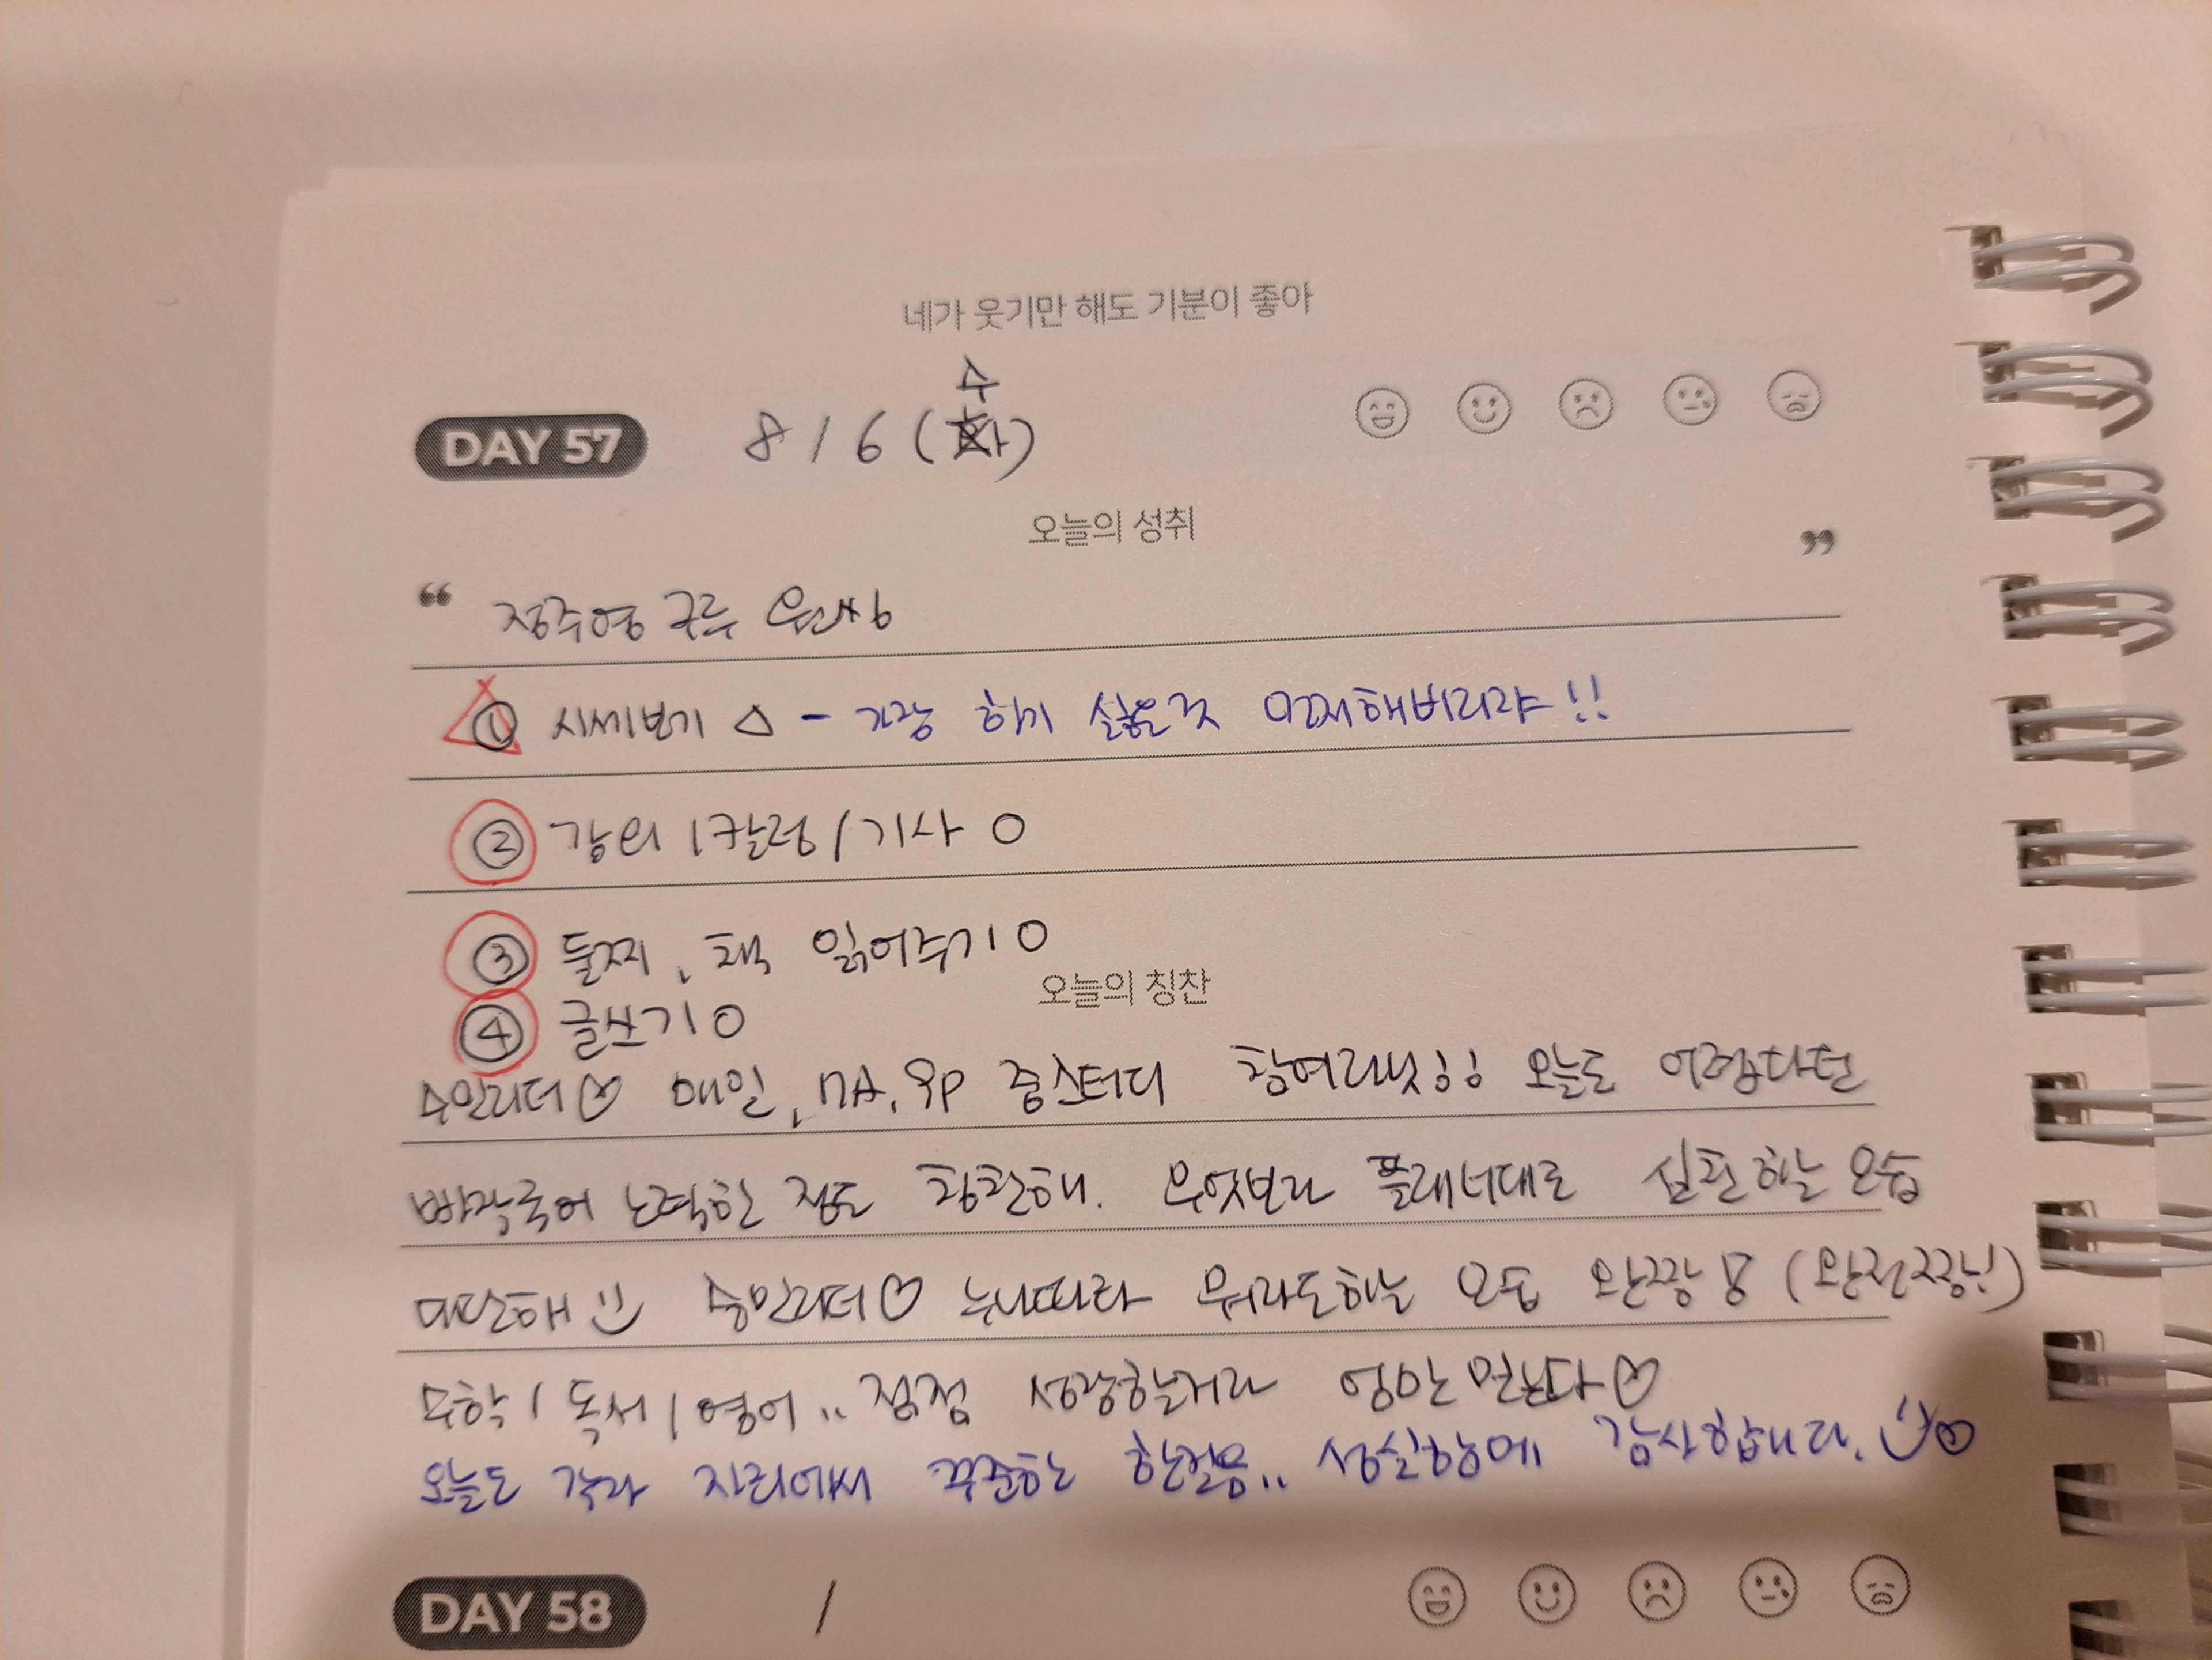 네가 웃기만 해도 기분이 좋아
수
DAY 57 8/6(화)
오늘의 성취
“ 정주영 구루 ”
① 시세보기 △ - 가장 하기 싫은 것 먼저해버리자!!
② 강의/칼럼/기사 O
③ 둘째, 책 읽어주기 O
④ 글쓰기 O
오늘의 칭찬
수인리더♡ 매일, 스터디 오늘도 어렵다던
노력한 점도 칭찬해. 무엇보다 플래너대로 실천하는 모습
대단해 :) 리더♡ 누나따라 뭐라도하는 모습 완짱 (완전짱!!)
수학/독서/영어.. 점점 성장할거라 엄마 믿는다♡
오늘도 각자 자리에서 꾸준한 한걸음.. 성실함에 감사합니다. :)♡
DAY 58 /